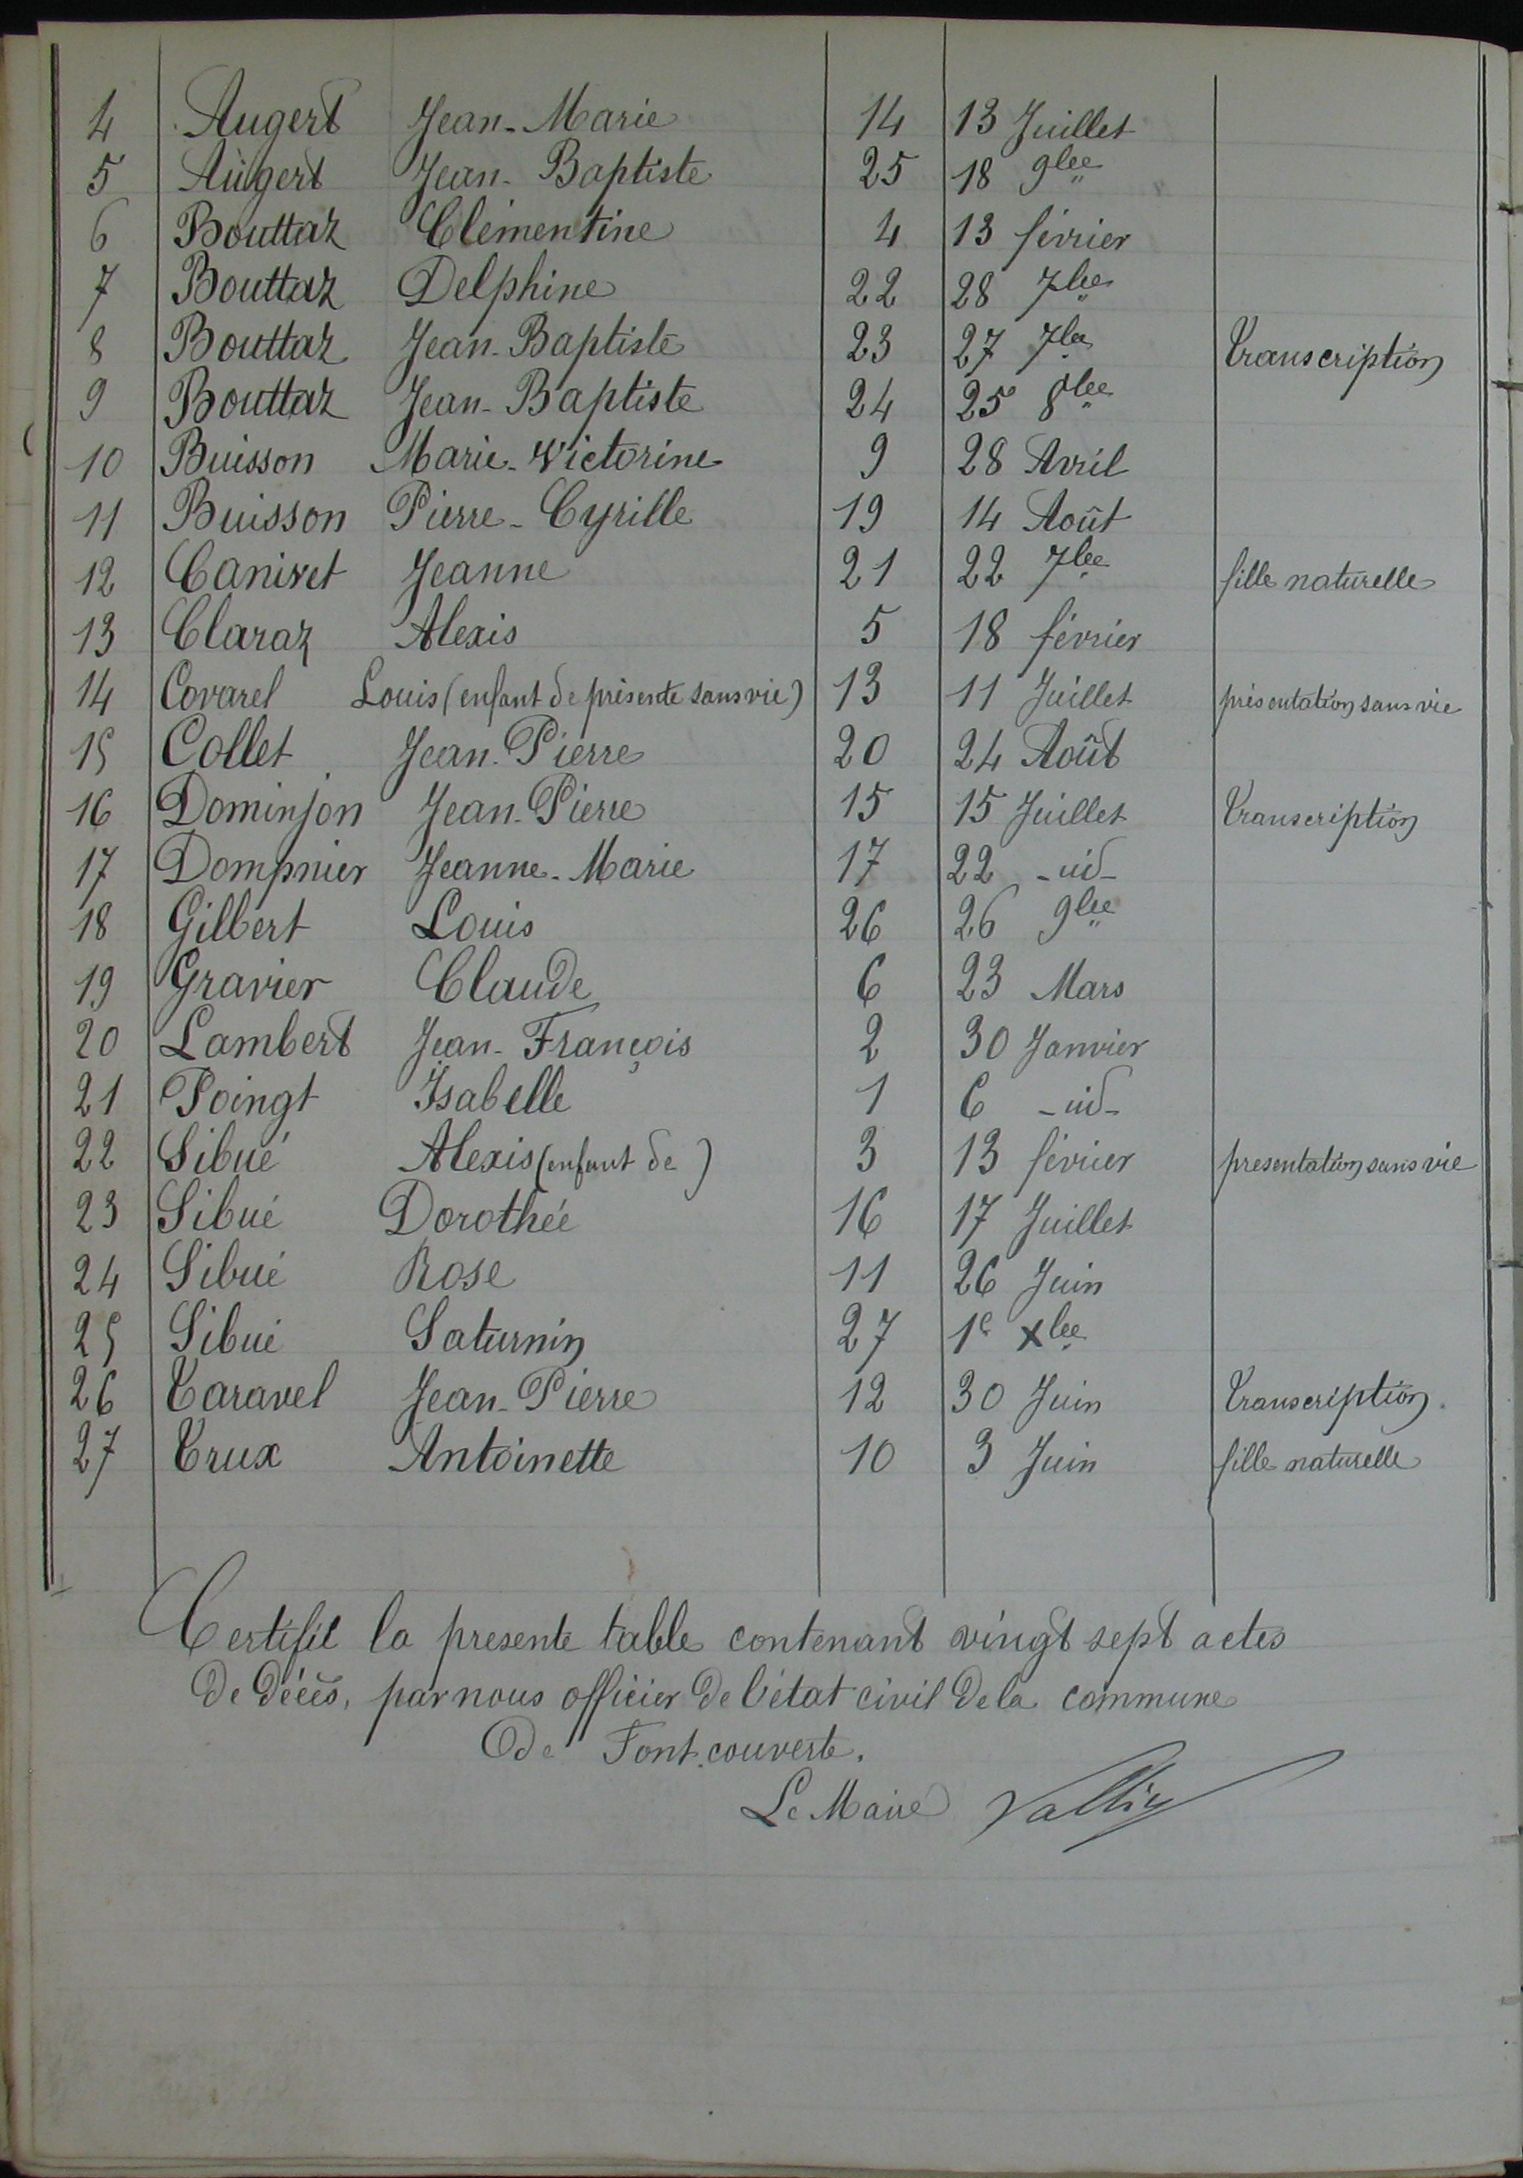 4 Augert Jean-Marie 14 13 Juillet
5 Augert Jean-Baptiste 25 18 9bre
6 Bouttaz Clémentine 4 13 février
7 Bouttaz Delphine 22 28 7bre
8 Bouttaz Jean-Baptiste 23 27 7bre Transcription
9 Bouttaz Jean-Baptiste 24 25 8bre
10 Buisson Marie-Victorine 9 28 Avril
11 Buisson Pierre-Cyrille 19 14 Août
12 Canivet Jeanne 21 22 7bre fille naturelle
13 Claraz Alexis 5 18 février
14 Covarel Louis (enfant de présente sans vie) 13 11 Juillet présentation sans vie
15 Collet Jean-Pierre 20 24 Août
16 Dominjon Jean-Pierre 15 15 Juillet Transcription
17 Dompnier Jeanne-Marie 17 22 -id-
18 Gilbert Louis 26 26 9bre
19 Gravier Claude 6 23 Mars
20 Lambert Jean-François 2 30 Janvier
21 Poingt Isabelle 1 6 -id-
22 Sibué Alexis (enfant de ) 3 13 février presentation sans vie
23 Sibué Dorothée 16 17 Juillet
24 Sibué Rose 11 26 Juin
25 Sibué Saturnin 27 1e xbre
26 Taravel Jean-Pierre 12 30 Juin Transcription.
27 Trux Antoinette 10 3 Juin fille naturelle
Certifié la presente table contenant vingt sept actes
de décès, par nous officier de l'état civil de la commune
de Fontcouverte.
Le Maire